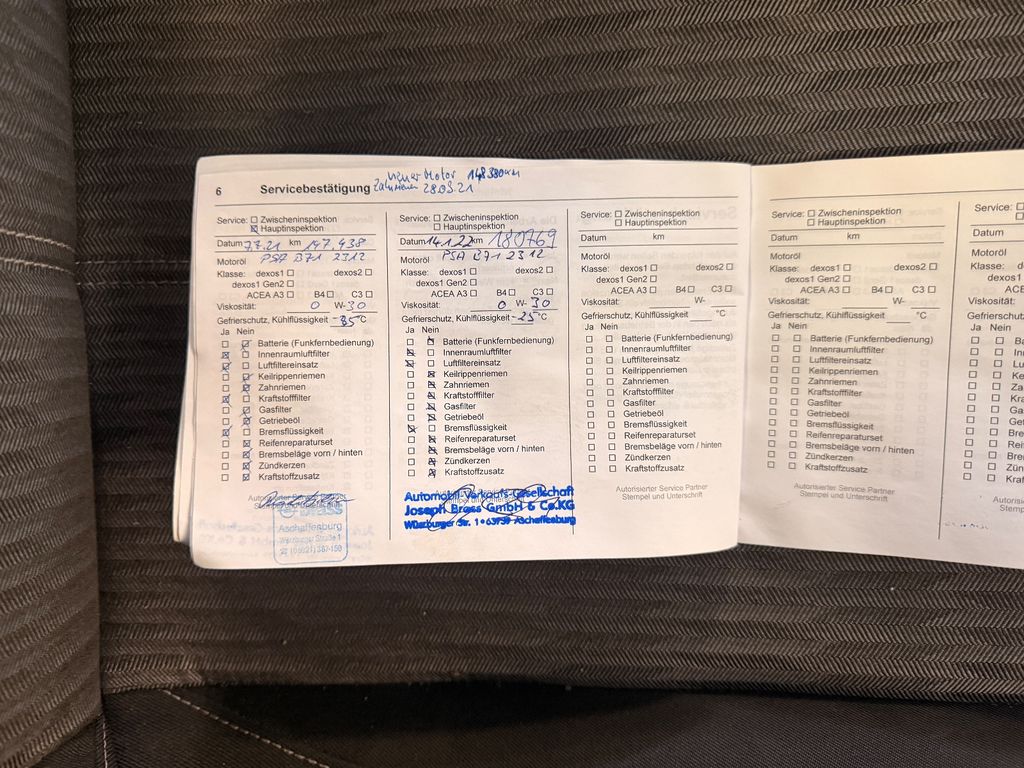 6 Servicebestätigung
neuer Motor 148380km
Zahnriemen 28.09.21
Service: ☐ Zwischeninspektion
☒ Hauptinspektion
Datum 7.7.21 km 147.438
Motoröl PSA B71 2312
Klasse: dexos1 ☐ dexos2 ☐
dexos1 Gen2 ☐
ACEA A3 ☐ B4 ☐ C3 ☐
Viskosität: 0 W- 30
Gefrierschutz, Kühlflüssigkeit -35 °C
Ja Nein
☐ ☒ Batterie (Funkfernbedienung)
☒ ☐ Innenraumluftfilter
☒ ☐ Luftfiltereinsatz
☐ ☒ Keilrippenriemen
☐ ☒ Zahnriemen
☒ ☐ Kraftstofffilter
☐ ☐ Gasfilter
☐ ☒ Getriebeöl
☒ ☐ Bremsflüssigkeit
☐ ☒ Reifenreparaturset
☐ ☒ Bremsbeläge vorn / hinten
☐ ☒ Zündkerzen
☐ ☒ Kraftstoffzusatz
Brass
Aschaffenburg
Würzburger Straße 1
Service: ☐ Zwischeninspektion
☐ Hauptinspektion
Datum 14.1.22 km 180769
Motoröl PSA B71 2312
Klasse: dexos1 ☐ dexos2 ☐
dexos1 Gen2 ☐
ACEA A3 ☐ B4 ☐ C3 ☐
Viskosität: 0 W- 30
Gefrierschutz, Kühlflüssigkeit -25 °C
Ja Nein
☐ ☒ Batterie (Funkfernbedienung)
☒ ☐ Innenraumluftfilter
☒ ☐ Luftfiltereinsatz
☐ ☒ Keilrippenriemen
☐ ☒ Zahnriemen
☐ ☒ Kraftstofffilter
☐ ☒ Gasfilter
☐ ☒ Getriebeöl
☒ ☐ Bremsflüssigkeit
☐ ☒ Reifenreparaturset
☐ ☒ Bremsbeläge vorn / hinten
☐ ☒ Zündkerzen
☐ ☒ Kraftstoffzusatz
Automobil-Verkaufs-Gesellschaft
Joseph Brass GmbH & Co.KG
Würzburger Str. 1 • 63739 Aschaffenburg
Service: ☐ Zwischeninspektion
☐ Hauptinspektion
Datum km
Motoröl
Klasse: dexos1 ☐ dexos2 ☐
dexos1 Gen2 ☐
ACEA A3 ☐ B4 ☐ C3 ☐
Viskosität: W-
Gefrierschutz, Kühlflüssigkeit °C
Ja Nein
☐ ☐ Batterie (Funkfernbedienung)
☐ ☐ Innenraumluftfilter
☐ ☐ Luftfiltereinsatz
☐ ☐ Keilrippenriemen
☐ ☐ Zahnriemen
☐ ☐ Kraftstofffilter
☐ ☐ Gasfilter
☐ ☐ Getriebeöl
☐ ☐ Bremsflüssigkeit
☐ ☐ Reifenreparaturset
☐ ☐ Bremsbeläge vorn / hinten
☐ ☐ Zündkerzen
☐ ☐ Kraftstoffzusatz
Autorisierter Service Partner
Stempel und Unterschrift
Service: ☐ Zwischeninspektion
☐ Hauptinspektion
Datum km
Motoröl
Klasse: dexos1 ☐ dexos2 ☐
dexos1 Gen2 ☐
ACEA A3 ☐ B4 ☐ C3 ☐
Viskosität: W-
Gefrierschutz, Kühlflüssigkeit °C
Ja Nein
☐ ☐ Batterie (Funkfernbedienung)
☐ ☐ Innenraumluftfilter
☐ ☐ Luftfiltereinsatz
☐ ☐ Keilrippenriemen
☐ ☐ Zahnriemen
☐ ☐ Kraftstofffilter
☐ ☐ Gasfilter
☐ ☐ Getriebeöl
☐ ☐ Bremsflüssigkeit
☐ ☐ Reifenreparaturset
☐ ☐ Bremsbeläge vorn / hinten
☐ ☐ Zündkerzen
☐ ☐ Kraftstoffzusatz
Autorisierter Service Partner
Stempel und Unterschrift
Service: ☐
Datum
Motoröl
Klasse:
Viskosität:
Gefrierschutz
Ja Nein